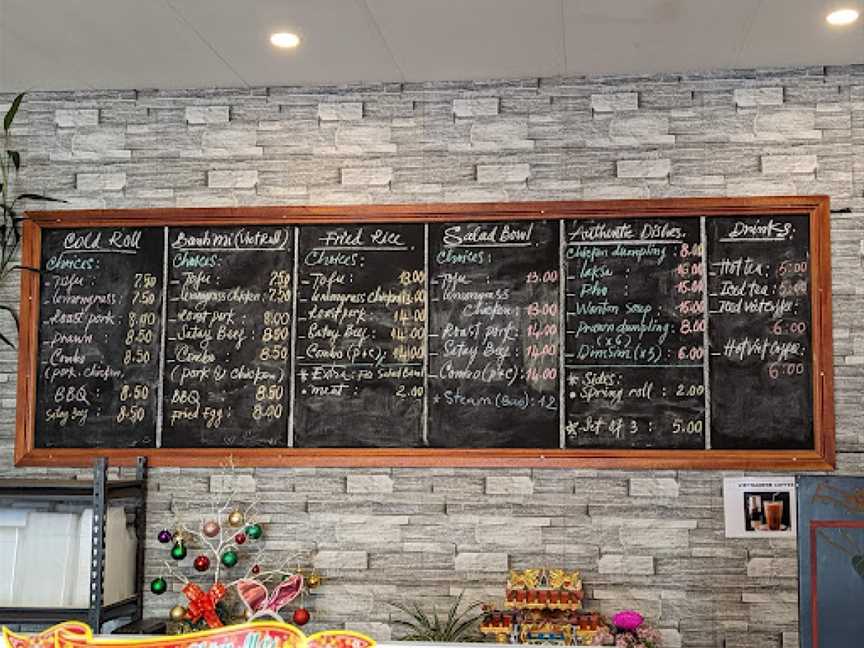 Cold Roll
Choices:
- Tofu : 7.50
- Lemongrass : 7.50
- Roast pork : 8.00
- Prawn : 8.50
- Combo : 8.50
(pork. chicken,
BBQ : 8.50
Satay Beef : 8.50
Banh Mi (Viet Roll)
Choices:
- Tofu : 7.50
- Lemongrass chicken : 7.50
- Roast pork : 8.00
- Satay Beef : 8.50
- Combo : 8.50
(pork & chicken)
BBQ : 8.50
Fried Egg : 8.00
Fried Rice
Choices:
- Tofu : 13.00
- Lemongrass chicken 13.00
- Roast pork : 14.00
- Satay Beef : 14.00
- Combo (p+c) : 14.00
* Extra : For Salad Bowl
• meat : 2.00
Salad Bowl
Choices:
- Tofu : 13.00
- Lemongrass
Chicken : 13.00
- Roast pork : 14.00
- Satay Beef : 14.00
- Combo (p+c) : 14.00
* Steam (Bao) : 12
Authentic Dishes.
Chicken dumpling : 8.00
- Laksa : 15.00
- Pho : 15.00
- Wonton Soup : 15.00
- Prawn dumpling : 8.00
(x6)
- Dim Sim (x5) : 6.00
* Sides :
• Spring roll : 2.00
* Set of 3 : 5.00
Drinks :
- Hot tea : 5.00
- Iced tea : 5.00
- Iced Viet coffee :
6.00
- Hot Viet Coffee :
6.00
VIETNAMESE COFFEE